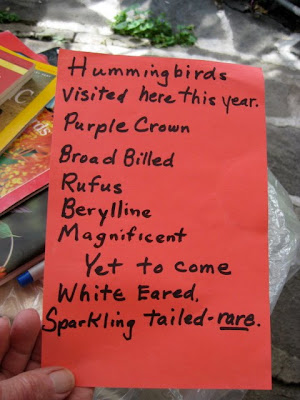 Hummingbirds
visited here this year.
Purple Crown
Broad Billed
Rufus
Berylline
Magnificent
Yet to come
White Eared.
Sparkling tailed-rare.